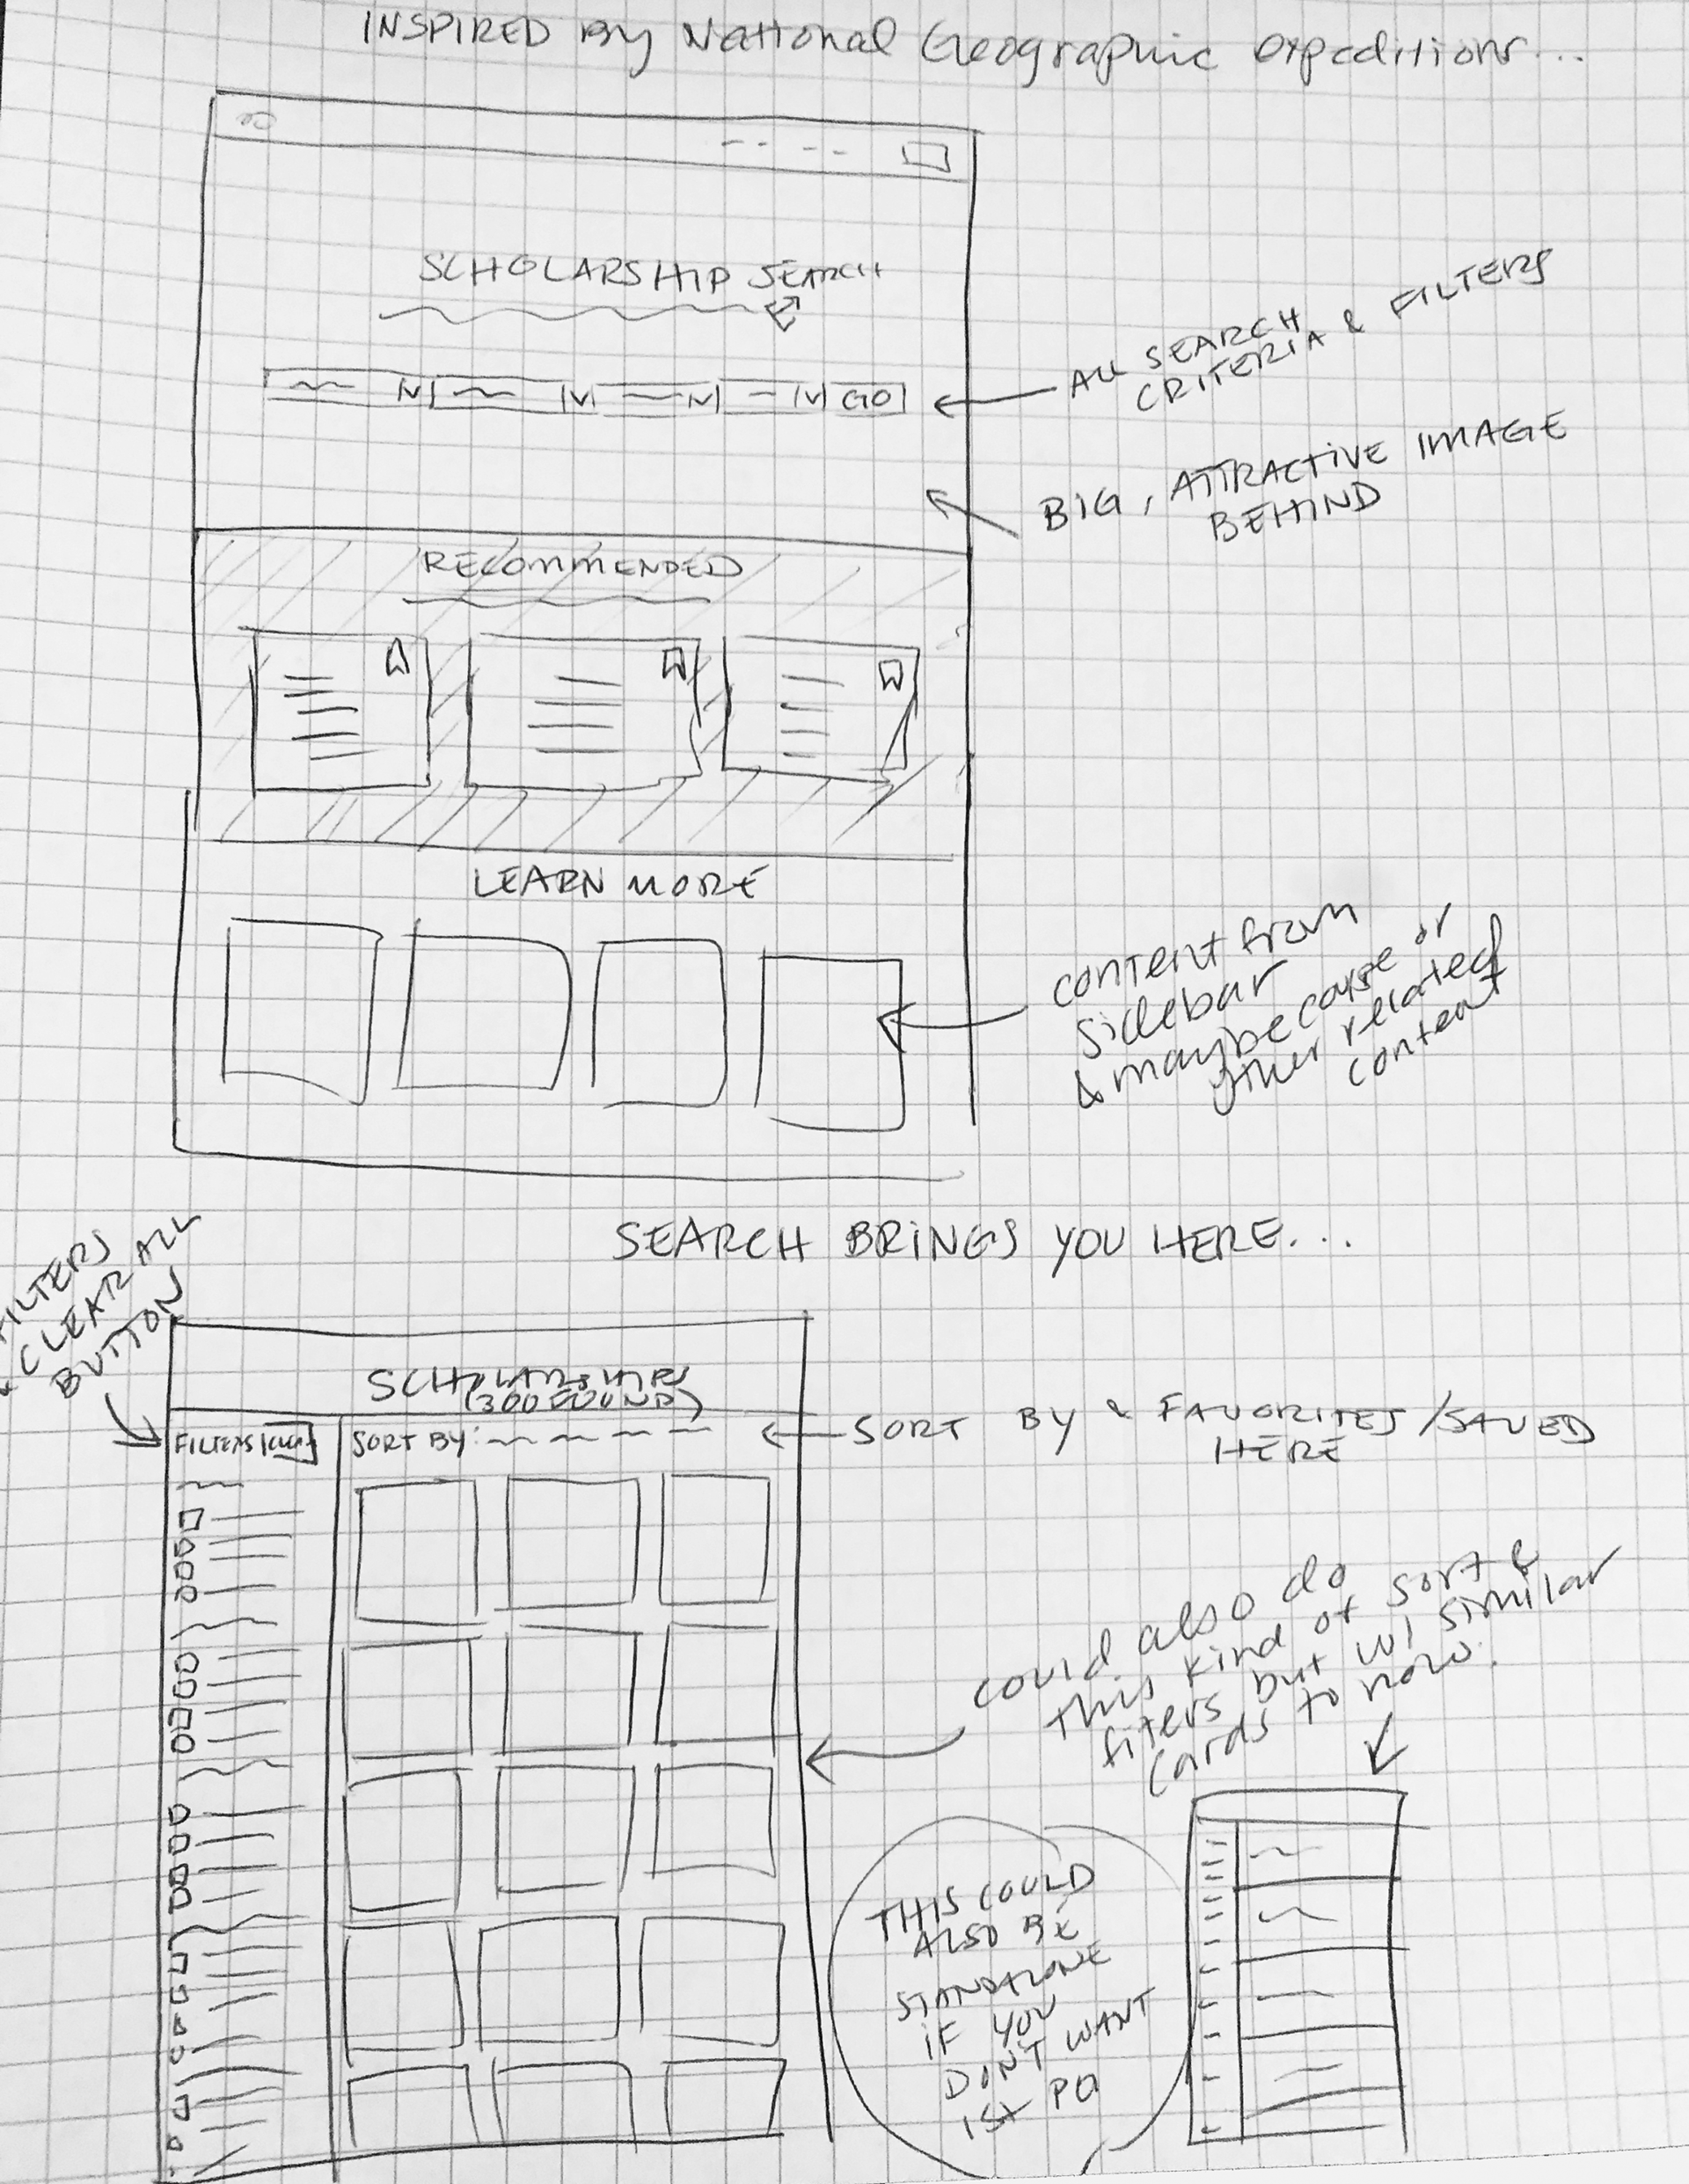 INSPIRED By National Geographic expeditions...
SCHOLARSHIP SEARCH
GO
ALL SEARCH
CRITERIA & FILTERS
BIG, ATTRACTIVE IMAGE
BEHIND
RECOMMENDED
LEARN MORE
content from
sidebar
& maybe course or
other related
content
SEARCH BRINGS YOU HERE...
FILTERS
& CLEAR ALL
BUTTON
SCHOLARSHIPS
(300 FOUND)
FILTERS
SORT BY:
SORT BY & FAVORITES/SAVED
HERE
could also do
this kind of sort &
fiters but w/ similar
cards to now.
THIS COULD
ALSO BE
STANDALONE
IF YOU
DON'T WANT
1st PG